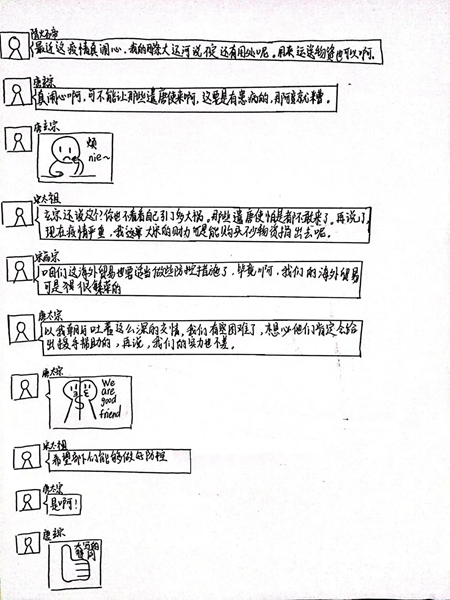 隋炀帝
最近这疫情真闹心,我的隋大运河说不定还有用处呢。用来运送物资也可以啊。
唐玄宗
真闹心啊,可不能让那些遣唐使来啊,这要是有患病的,那啊就糟。
唐玄宗
烦
nie~
宋太祖
玄宗还说这个?你也不看看自己引了多大祸。那些遣唐使怕是都不敢来了。再说了
现在疫情严重,我这宋大宋的财力可是能购买不少物资捐出去呢。
宋高宗
咱们这海外贸易也要适当做些防控措施了,毕竟啊,我们的海外贸易
可是很很繁荣的
唐太宗
以我朝与吐蕃这么深的交情,我们有些困难了,想必他们肯定会给
出援手帮助的,再说,我们的实力也不差。
唐太宗
We
are
good
friend
宋太祖
希望部们能够做好防控
唐太宗
是啊!
唐玄宗